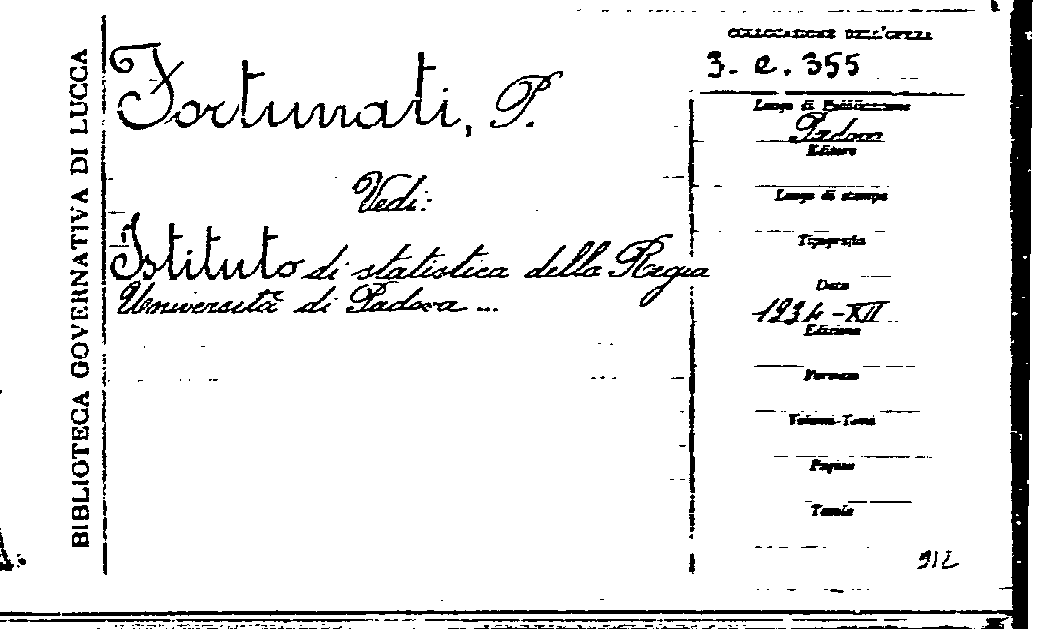 BIBLIOTECA GOVERNATIVA DI LUCCA
Fortunati, P.
Vedi:
Istituto di statistica della Regia
Università di Padova ...
COLLOCAZIONE DELL'OPERA
3. e. 355
Luogo di Pubblicazione
Padova
Editore
Luogo di stampa
Tipografia
Data
1934-XII
Edizione
Formato
Volumi-Tomi
Pagine
Tavole